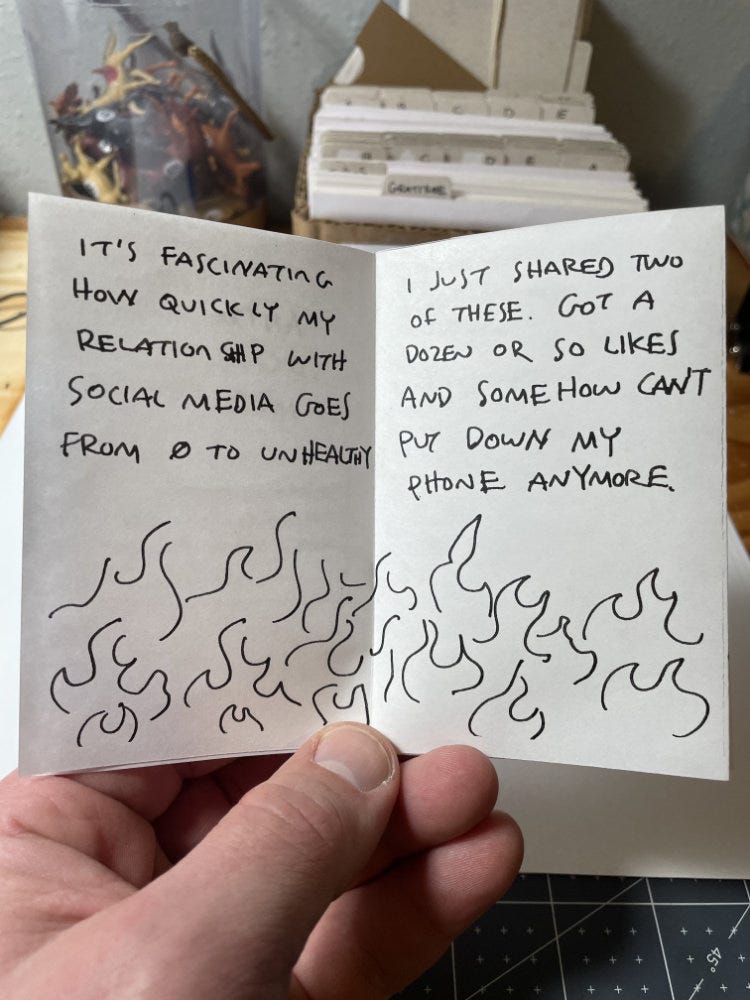 C D E
C D E
GRATITUDE
IT'S FASCINATING
HOW QUICKLY MY
RELATIONSHIP WITH
SOCIAL MEDIA GOES
FROM Ø TO UNHEALTHY
I JUST SHARED TWO
OF THESE. GOT A
DOZEN OR SO LIKES
AND SOMEHOW CAN'T
PUT DOWN MY
PHONE ANYMORE.
45°